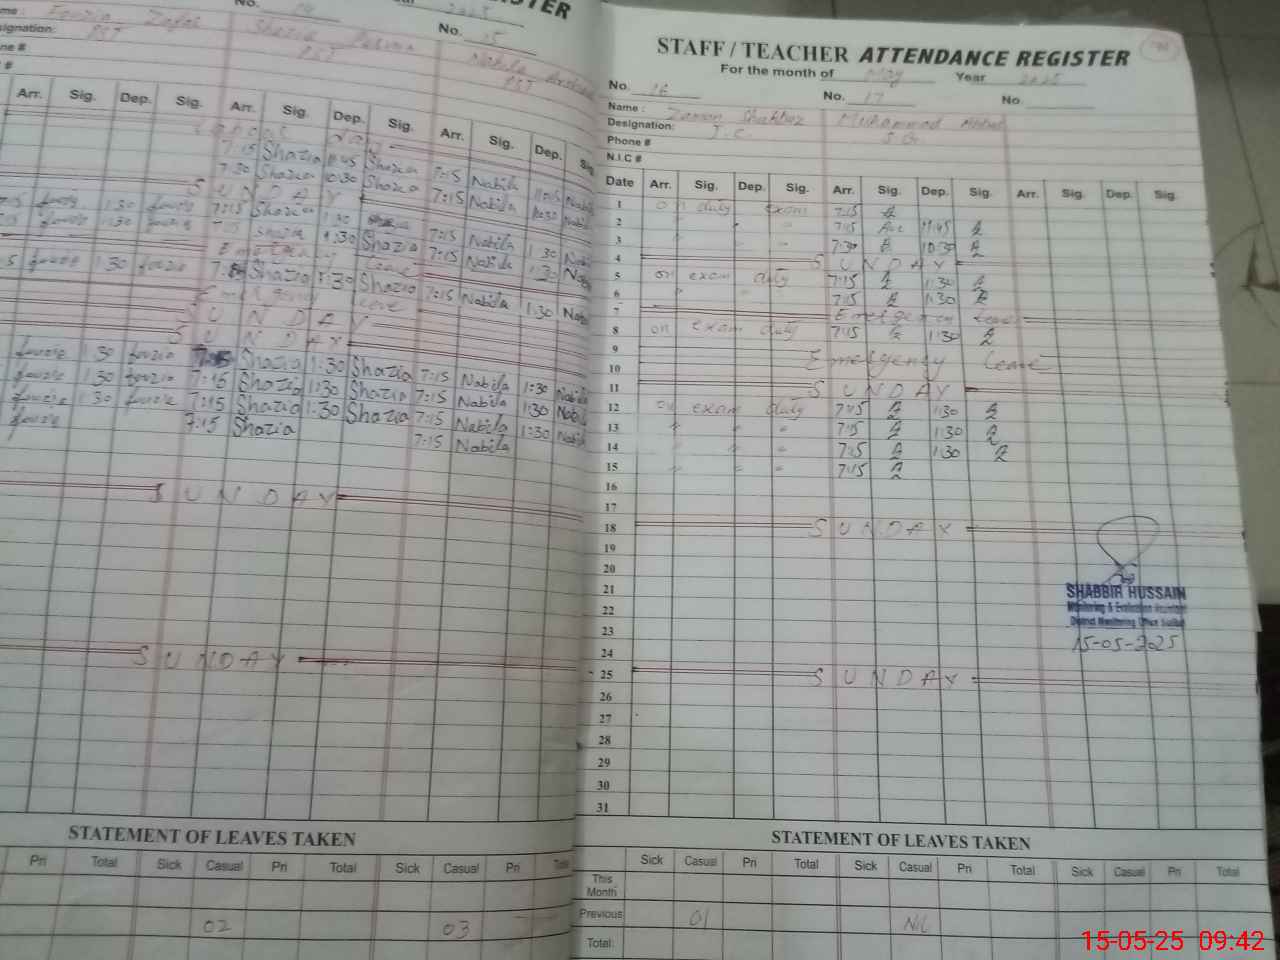 REGISTER
No. 15
Fouzia Zafar
Shazia
Nabila
PST PST PST
Arr. Sig. Dep. Sig. Arr. Sig. Dep. Sig. Arr. Sig. Dep.
7:15 Shazia 11:45 Shazia 7:15 Nabila
7:30 Shazia 10:30 Shazia 7:15 Nabila 10:30
SUNDAY
fouzie 1:30 fouzie 7:15 Shazia 1:30 7:15 Nabila 1:30
fouzie 1:30 fouzie 7:15 Shazia 1:30 Shazia 7:15 Nabila 1:30
Emergency Leave
fouzie 1:30 fouzie Shazia 1:30 Shazia 7:15 Nabila 1:30
Emergency Leave
SUNDAY
SUNDAY
fouzie 1:30 fouzie 7:15 Shazia 1:30 Shazia 7:15 Nabila 1:30 Nabila
fouzie 1:30 fouzie 7:15 Shazia 1:30 Shazia 7:15 Nabila 1:30 Nabila
fouzie 1:30 fouzie 7:15 Shazia 1:30 Shazia 7:15 Nabila 1:30
fouzie 7:15 Shazia 7:15 Nabila
SUNDAY
SUNDAY
STATEMENT OF LEAVES TAKEN
Pri Total Sick Casual Pri Total Sick Casual Pri Total
02 03
STAFF / TEACHER ATTENDANCE REGISTER
For the month of May Year 2025
No. 16 No. 17 No.
Name : Zaman Shahbaz Muhammad
Designation: J.C.
Phone #
N.I.C #
Date Arr. Sig. Dep. Sig. Arr. Sig. Dep. Sig. Arr. Sig. Dep. Sig.
1 on duty exam 7:15
2 7:15 11:45
3 7:30 10:30
4 SUNDAY
5 on exam duty 7:15 1:30
6 7:15 1:30
7 Emergency Leave
8 on exam duty 7:15 1:30
9 Emergency Leave
10
11 SUNDAY
12 on exam duty 7:15 1:30
13 7:15 1:30
14 7:15 1:30
15 7:15
16
17
18 SUNDAY
19
20
21
22
23
24
25 SUNDAY
26
27
28
29
30
31
SHABBIR HUSSAIN
Monitoring & Evaluation Assistant
District Monitoring Office
15-05-2025
STATEMENT OF LEAVES TAKEN
Sick Casual Pri Total Sick Casual Pri Total Sick Casual Pri Total
This Month
Previous 01 NIL
Total:
15-05-25 09:42